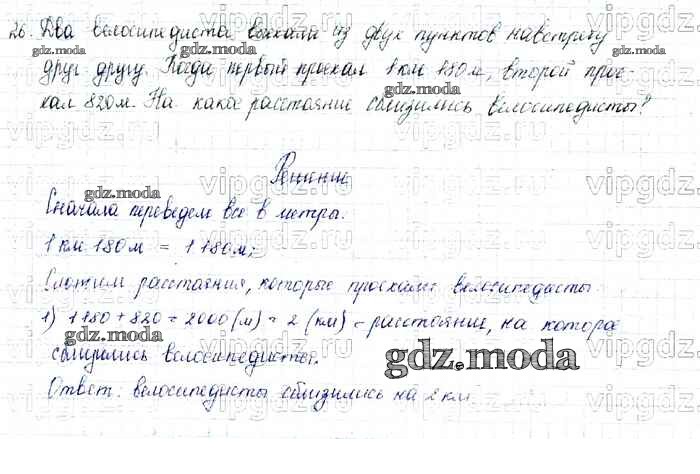 26. Два велосипедиста выехали из двух пунктов навстречу
друг другу. Когда первый проехал 1 км 180 м, второй прое-
хал 820 м. На какое расстояние сблизились велосипедисты?
Решение
Сначала переведем все в метры.
1 км 180 м = 1180 м;
Сложим расстояния, которые проехали велосипедисты.
1) 1180 + 820 = 2000 (м) = 2 (км) – расстояние, на которое
сблизились велосипедисты.
Ответ: велосипедисты сблизились на 2 км.
gdz.moda
gdz.moda
gdz.moda
gdz.moda
gdz.moda
gdz.moda
gdz.moda
gdz.moda
vipgdz.ru
vipgdz.ru
vipgdz.ru
vipgdz.ru